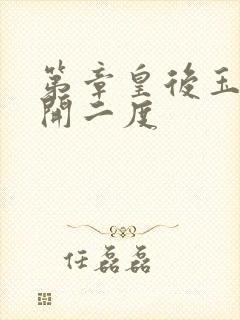 第章皇後玉
開二度
任磊磊